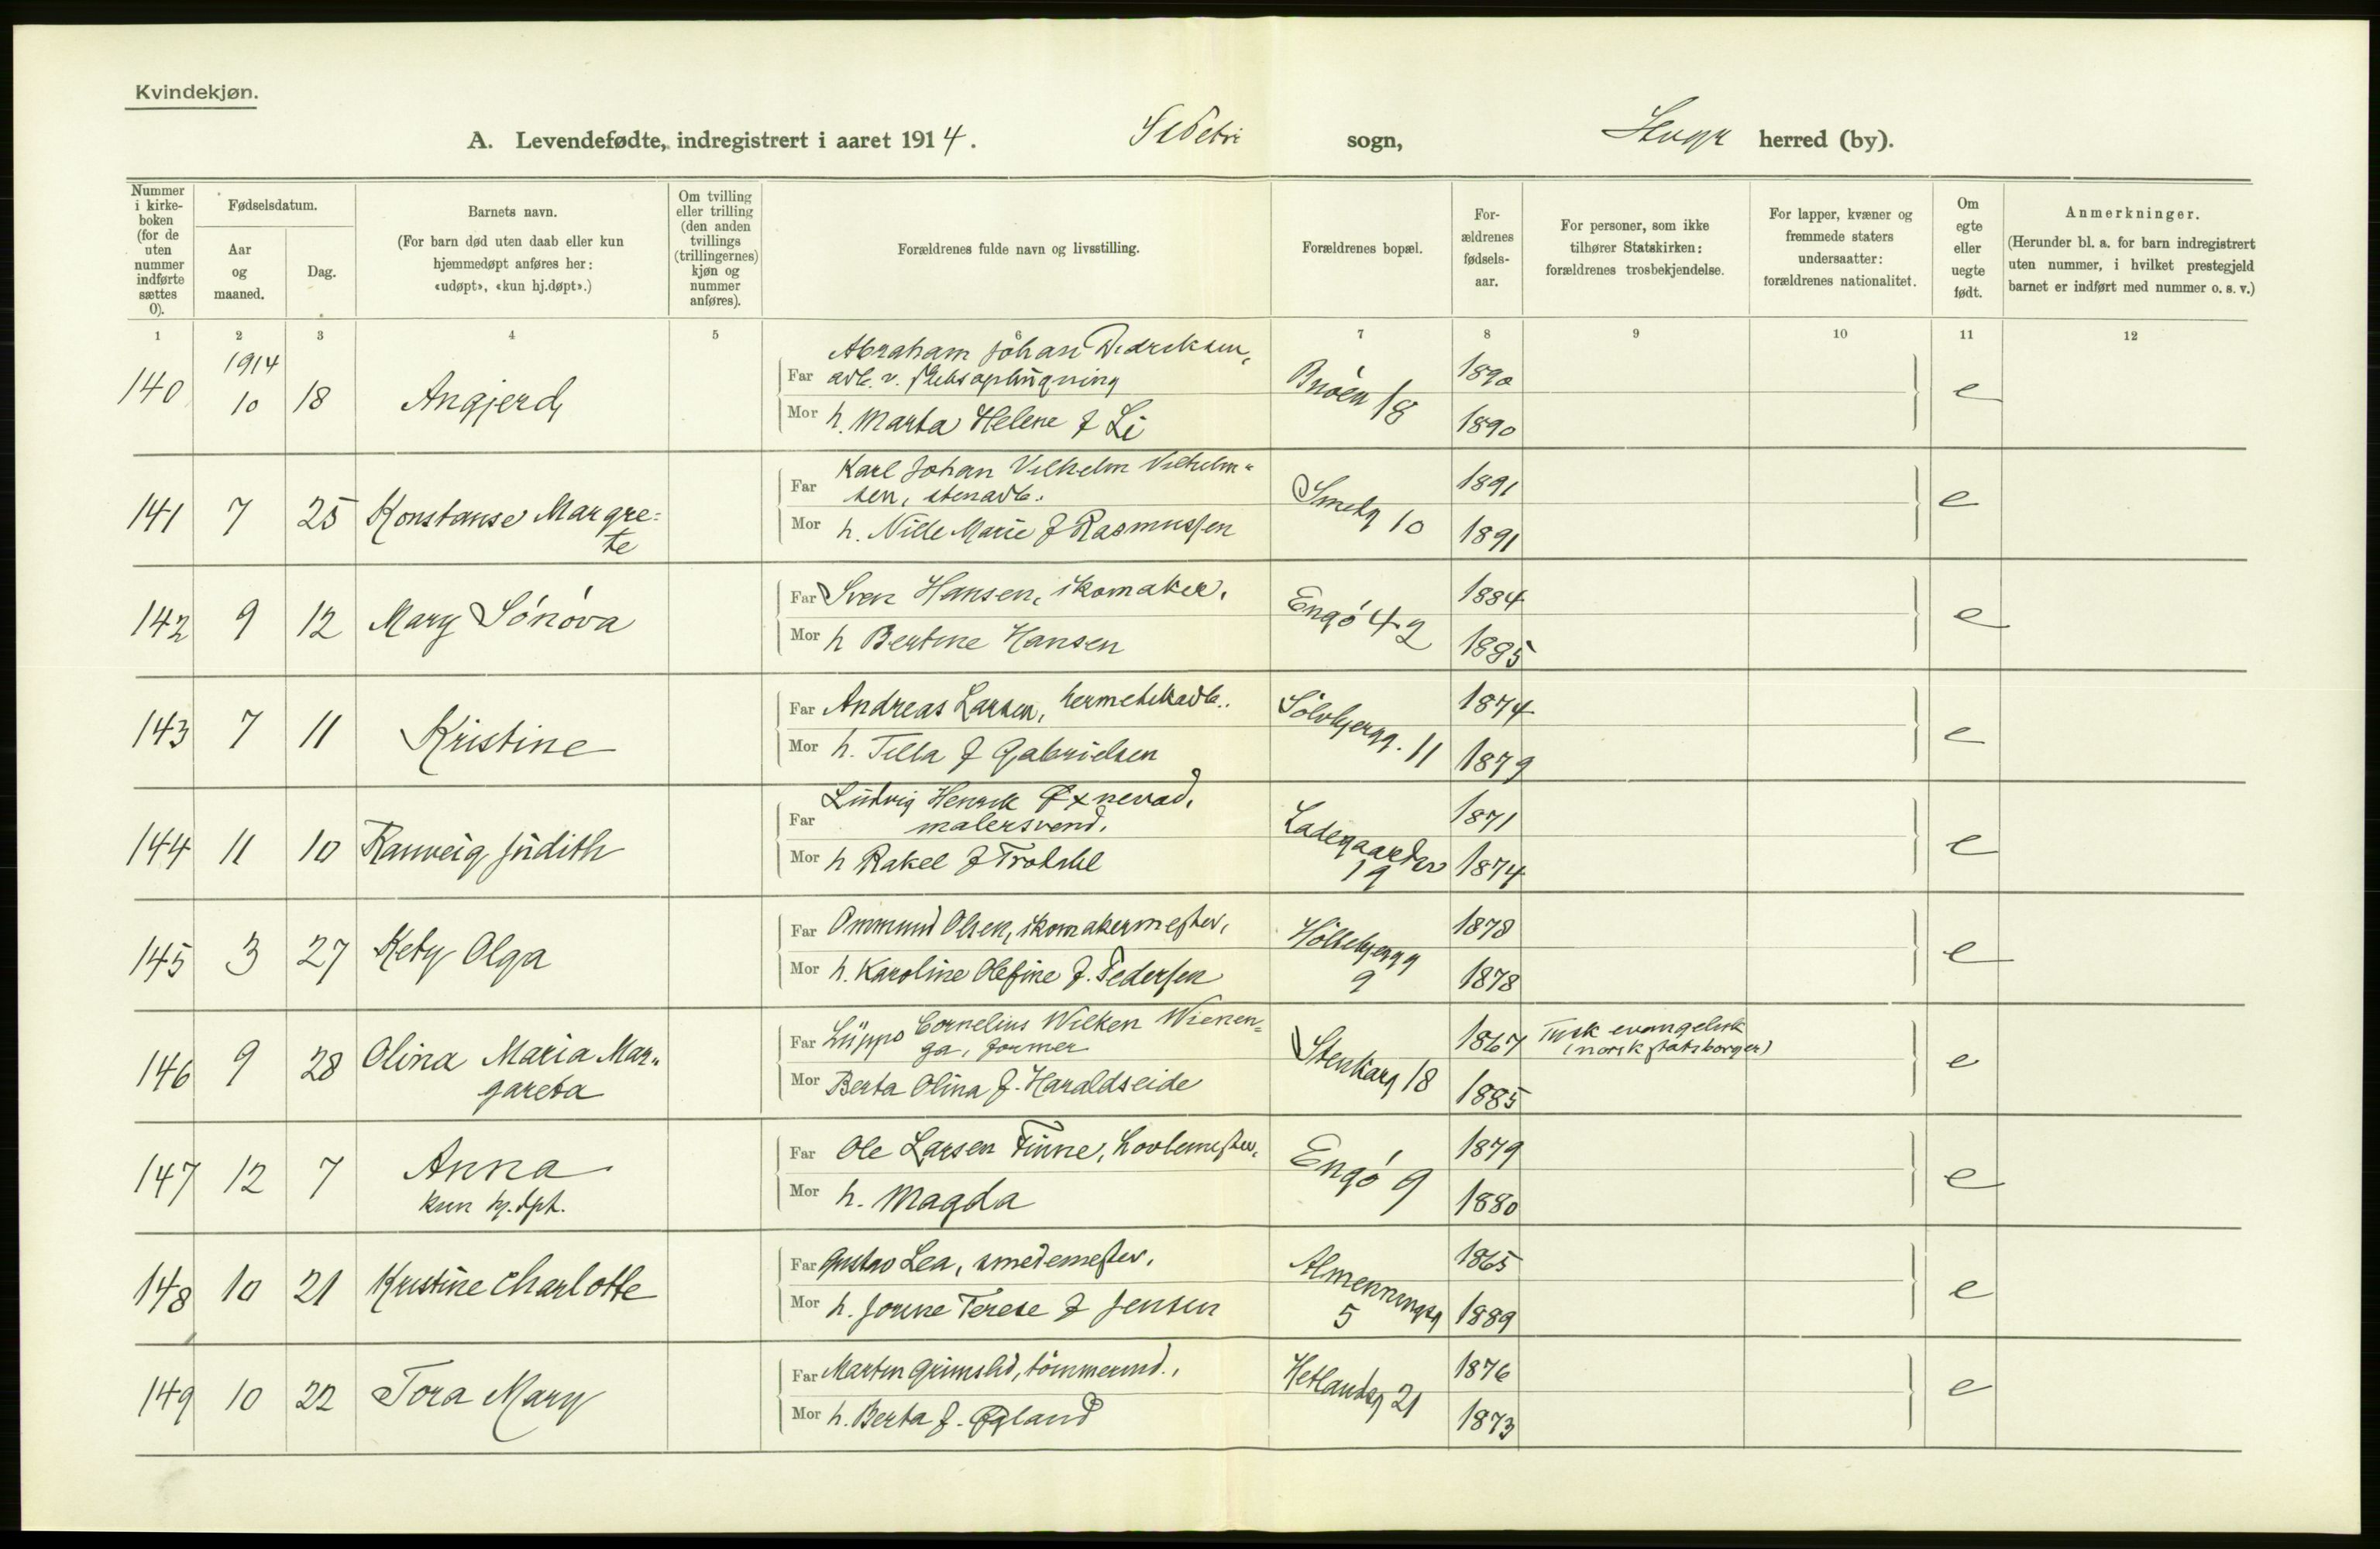 Kvindekjøn.
A. Levendefødte, indregistrert i aaret 1914. St Petri sogn, herred (by).
Nummer i kirke-boken (for de uten nummer indførte sættes 0).
Fødselsdatum.
Aar og maaned.
Dag.
Barnets navn.
(For barn død uten daab eller kun hjemmedøpt anføres her: «udøpt», «kun hj.døpt».)
Om tvilling eller trilling (den anden tvillings (trillingernes) kjøn og nummer anføres).
Forældrenes fulde navn og livsstilling.
Forældrenes bopæl.
For-ældrenes fødsels-aar.
For personer, som ikke tilhører Statskirken: forældrenes trosbekjendelse.
For lapper, kvæner og fremmede staters undersaatter: forældrenes nationalitet.
Om egte eller uegte født.
Anmerkninger.
(Herunder bl. a. for barn indregistrert uten nummer, i hvilket prestegjeld barnet er indført med nummer o. s. v.)
1 2 3 4 5 6 7 8 9 10 11 12
1914
140 10 18 Angjerd
Far Abraham Johan Didriksen,
arb. v. skibsophugning
Mor h. Marta Helene f Li
Bröen 18 1890 1890 e
141 7 25 Konstanse Margre=
te
Far Karl Johan Vilhelm Vilhelm=
sen, stenarb.
Mor h. Nille Marie f Rasmussen
Smedg 10 1891 1891 e
142 9 12 Mary Sónóva
Far Sven Hansen, skomaker.
Mor h Bertine Hansen
Engó 42 1884 1885 e
143 7 11 Kristine
Far Andreas Larsen, hermetikarb.
Mor h. Tilla f Gabrielsen
Sölvbjergg. 11 1874 1879 e
144 11 10 Ranveig Judith
Far Ludvig Henrik Øxnevad,
malersvend.
Mor h Rakel f
Ladegaardsv
19 1871 1874 e
145 3 27 Kety Olga
Far Ommund Olsen, skomakermester,
Mor h. Karoline Olefine f. Pedersen
9 1878 1878 e
146 9 28 Olina Maria Mar=
gareta
Far Lüppo Cornelius Wilken Wienen=
ga, former
Mor Berta Olina f. Haraldseide
Stenkarg 18 1867 1885 Tysk evangelisk
(norsk statsborger) e
147 12 7 Anna
kun hj.dpt.
Far Ole Larsen Finne,
Mor h. Magda
Engó 9 1879 1880 e
148 10 21 Kristine Charlotte
Far Gustav Lea, smedemester.
Mor h. Jorine Terese f Jensen
Almenningsg
5 1865 1889 e
149 10 22 Tora Mary
Far Martin Grimslid, tömmermd.,
Mor h. Berta f. Øgland
Hetlandsg 21 1876 1873 e